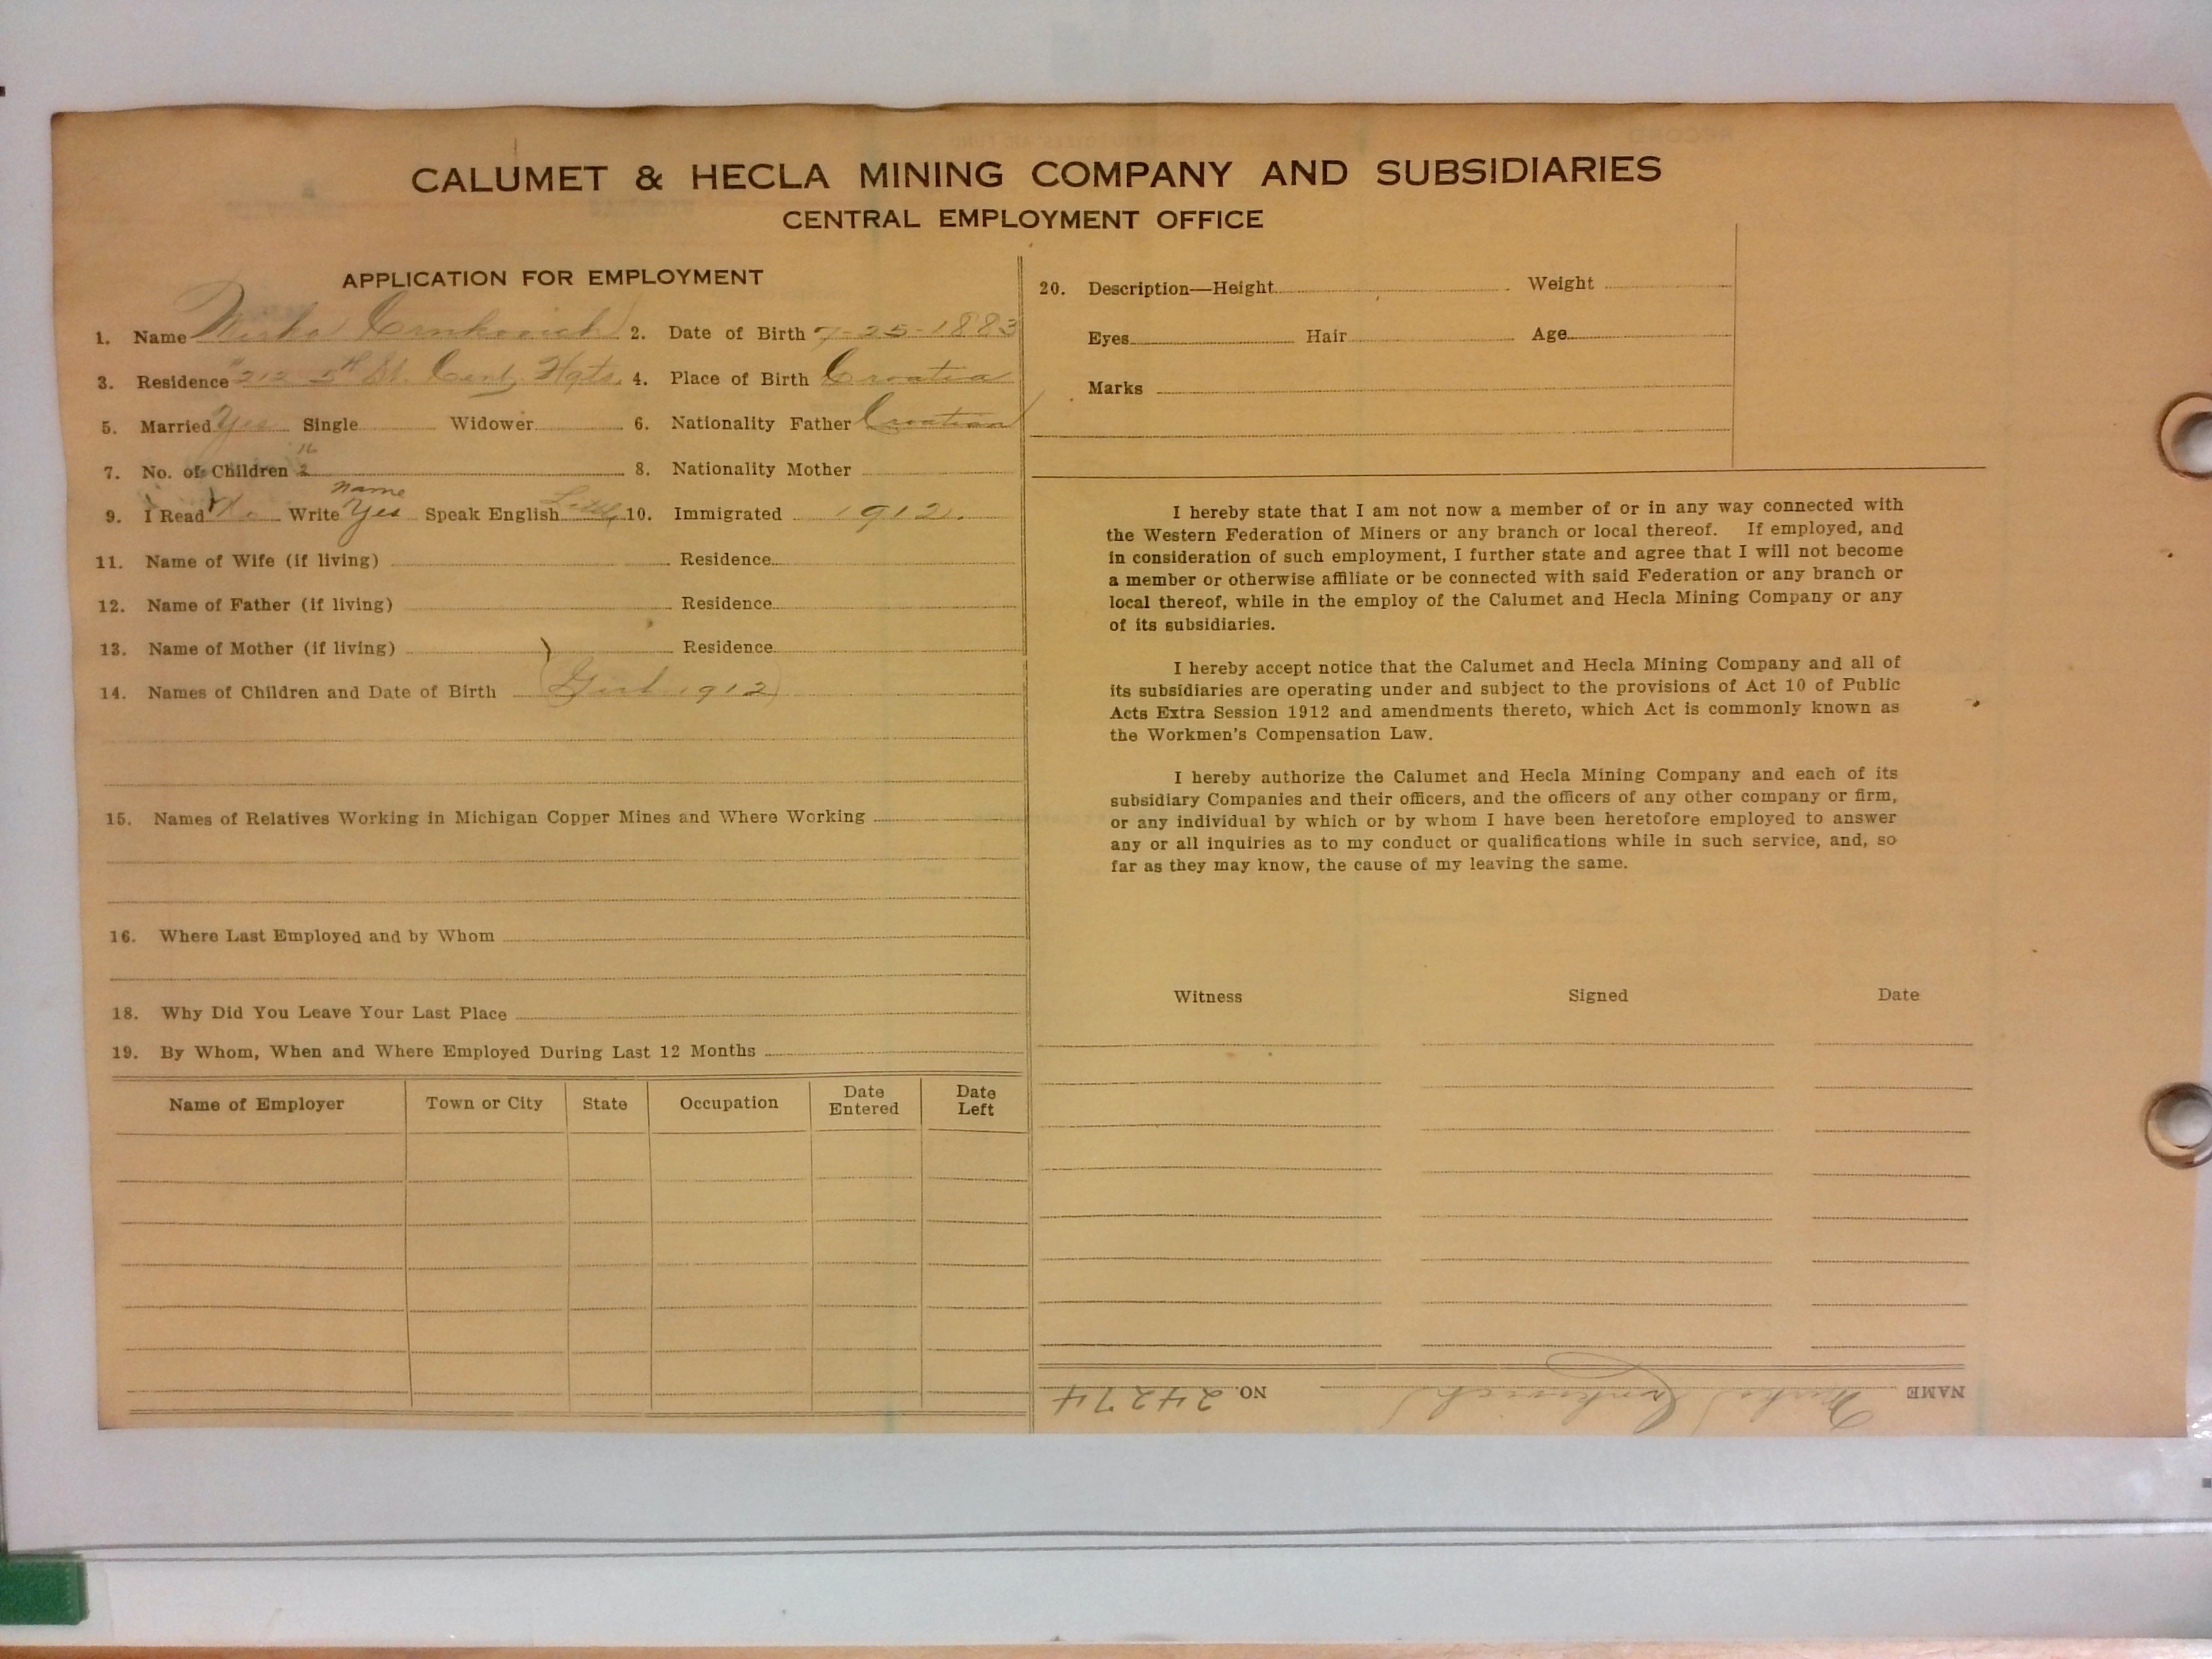 CALUMET & HECLA MINING COMPANY AND SUBSIDIARIES
CENTRAL EMPLOYMENT OFFICE
APPLICATION FOR EMPLOYMENT
1. Name Mirko Crnkovich 2. Date of Birth 7-25-1883
3. Residence 212 5th St. Cent. Hgts. 4. Place of Birth Croatia
5. Married Yes Single Widower 6. Nationality Father Croatian
7. No. of Children 2 8. Nationality Mother
name
9. I Read No Write Yes Speak English Little 10. Immigrated 1912.
11. Name of Wife (if living) Residence
12. Name of Father (if living) Residence
13. Name of Mother (if living) Residence
14. Names of Children and Date of Birth (Girl 1912)
15. Names of Relatives Working in Michigan Copper Mines and Where Working
16. Where Last Employed and by Whom
18. Why Did You Leave Your Last Place
19. By Whom, When and Where Employed During Last 12 Months
Name of Employer Town or City State Occupation Date Entered Date Left
20. Description—Height Weight
Eyes Hair Age
Marks
I hereby state that I am not now a member of or in any way connected with
the Western Federation of Miners or any branch or local thereof. If employed, and
in consideration of such employment, I further state and agree that I will not become
a member or otherwise affiliate or be connected with said Federation or any branch or
local thereof, while in the employ of the Calumet and Hecla Mining Company or any
of its subsidiaries.
I hereby accept notice that the Calumet and Hecla Mining Company and all of
its subsidiaries are operating under and subject to the provisions of Act 10 of Public
Acts Extra Session 1912 and amendments thereto, which Act is commonly known as
the Workmen's Compensation Law.
I hereby authorize the Calumet and Hecla Mining Company and each of its
subsidiary Companies and their officers, and the officers of any other company or firm,
or any individual by which or by whom I have been heretofore employed to answer
any or all inquiries as to my conduct or qualifications while in such service, and, so
far as they may know, the cause of my leaving the same.
Witness Signed Date
NAME Mirko Crnkovich NO. 24274